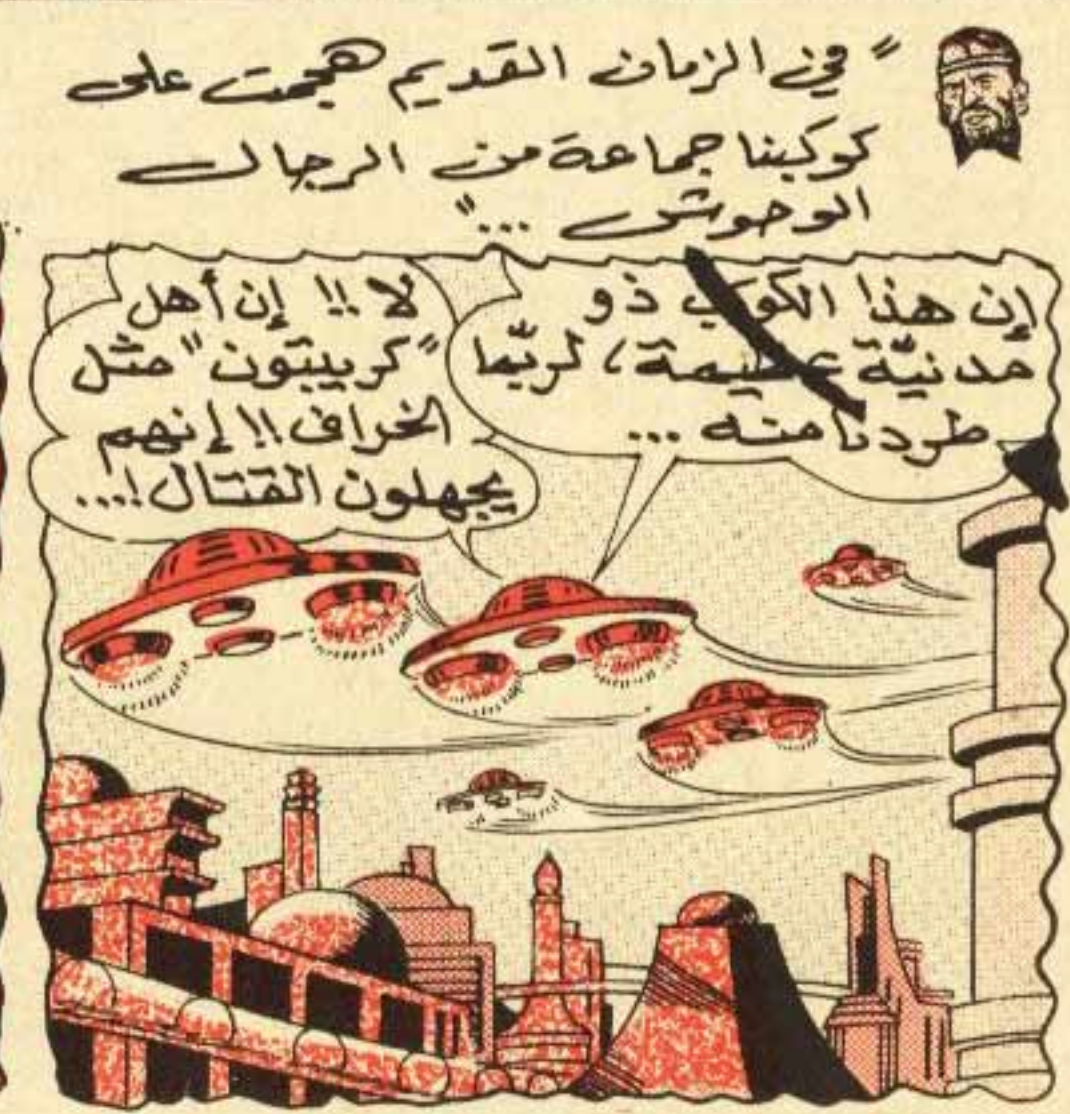 " في الزمان القديم هجمت على
كوكبنا جماعة من الرجال
الوحوش ... "
إن هذا الكوكب ذو
مدنيّة عظيمة، لربّما
طردنا منه ...
لا !! إن أهل
"كريبتون" مثل
الخراف !! إنهم
يجهلون القتال !...